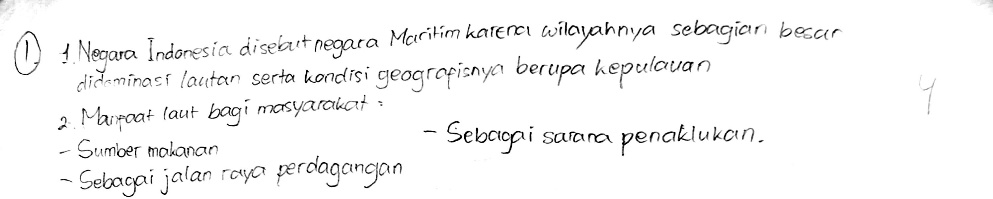 ① 1. Negara Indonesia disebut negara Maritim karena wilayahnya sebagian besar
didominasi lautan serta kondisi geografisnya berupa kepulauan
2. Manfaat laut bagi masyarakat :
- Sumber makanan
- Sebagai jalan raya perdagangan
- Sebagai sarana penaklukan.
4